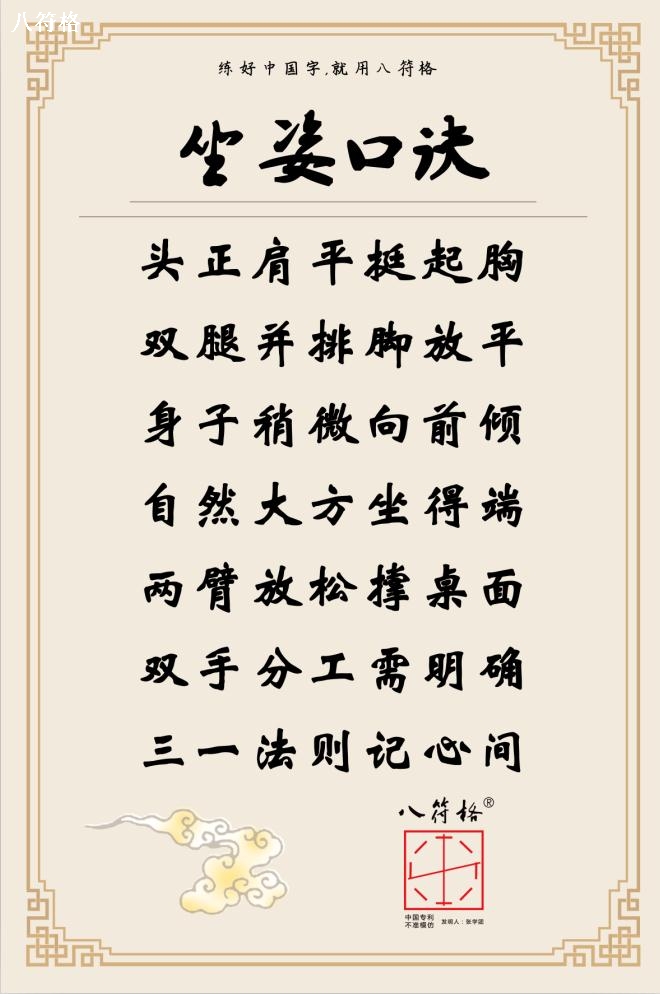 八符格
练好中国字,就用八符格
坐姿口诀
头正肩平挺起胸
双腿并排脚放平
身子稍微向前倾
自然大方坐得端
两臂放松撑桌面
双手分工需明确
三一法则记心间
八符格®
中国专利
不准模仿
发明人：张学团